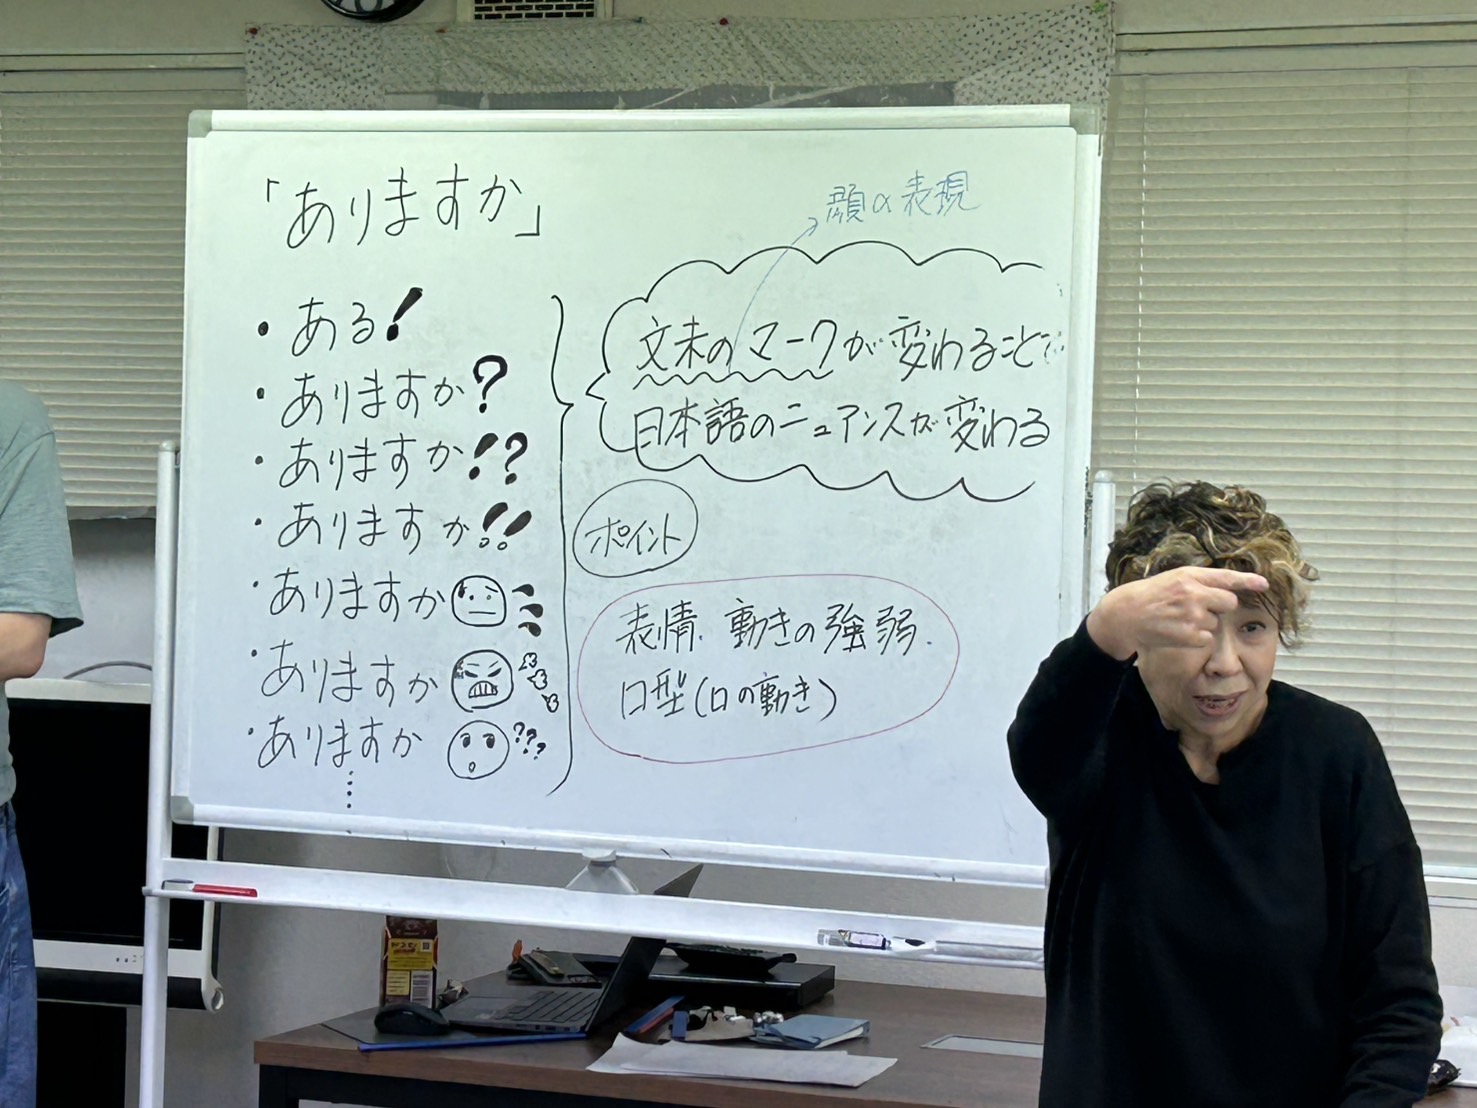 「ありますか」
・ある!
・ありますか?
・ありますか!?
・ありますか!!
・ありますか
・ありますか
・ありますか ???
顔の表現
文末のマークが変わることで
日本語のニュアンスが変わる
ポイント
表情、動きの強弱、
口型(口の動き)